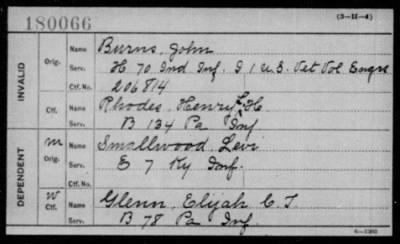 180066
(3—H—4)
INVALID
Orig. Name Burns, John
Serv. H 70 Ind Inf. I 1 U.S. Vet Vol Engrs
Ctf. No. 206814
Ctf. Name Rhodes, Henry H.
Serv. B 134 Pa Inf
DEPENDENT
m Orig. Name Smallwood, Levi
Serv. E 7 Ky Inf.
Ctf. No.
W Ctf. Name Glenn, Elijah C. T.
Serv. B 78 Pa Inf.